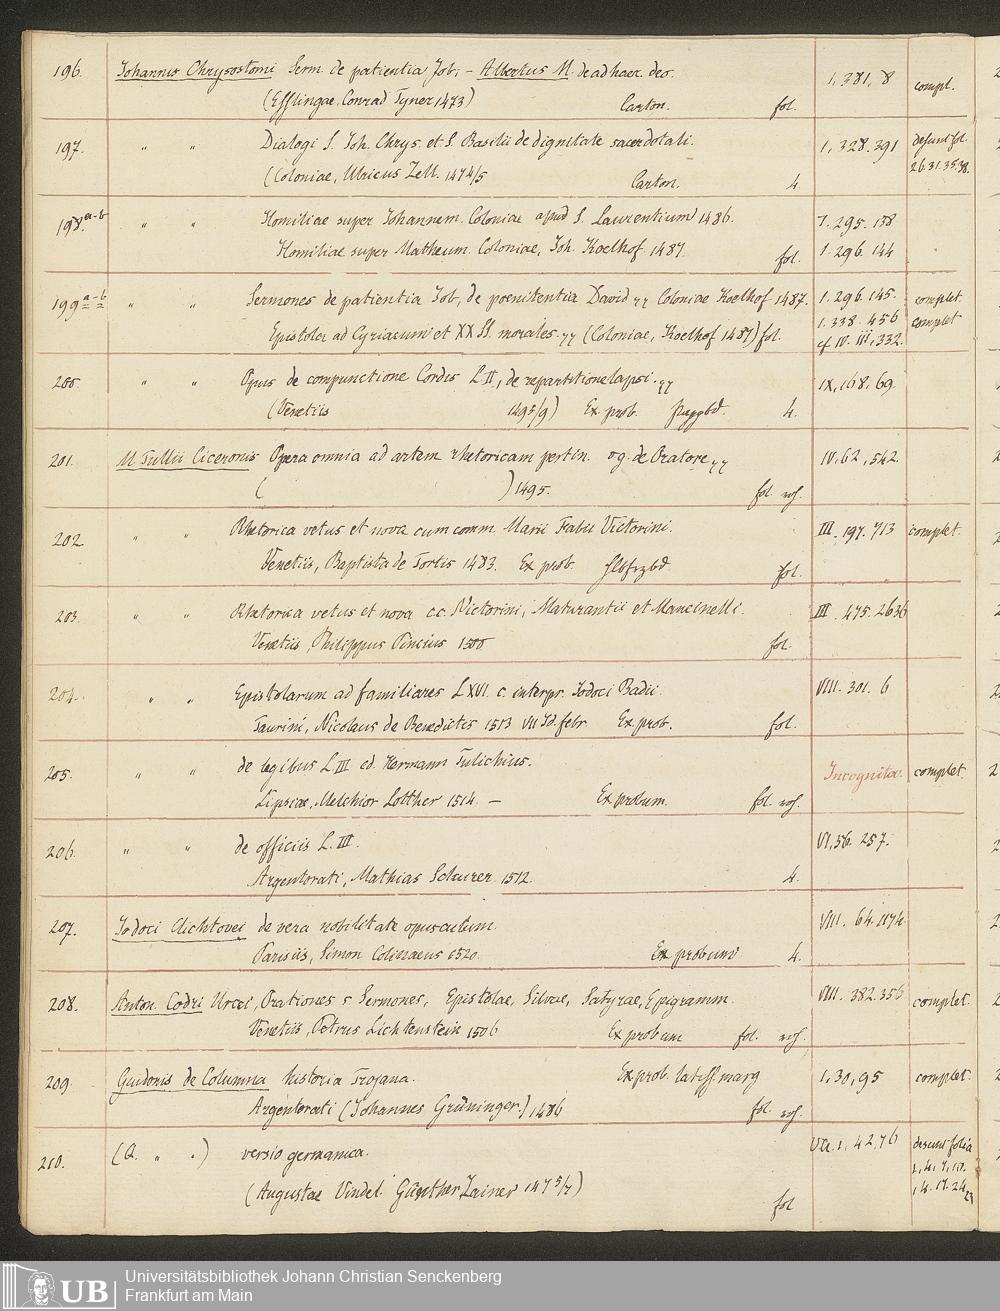 196. Johannis Chrysostomi Serm. de patientia Job, – Albertus M. de adhaer. deo. 1, 381, 8 compl.
(Esslingae, Conrad Fyner 1473) Carton. fol.
197. " " Dialogi S. Joh. Chrys. et S. Basilii de dignitate sacerdotali. 1, 328. 391 desunt fol.
(Coloniae, Ulricus Zell. 1474/5 Carton. 4. 26.31.35.38.
198.a-b " " Homiliae super Johannem. Coloniae apud S. Laurentium 1486. 1. 295. 138
Homiliae super Matheum. Coloniae, Joh. Koelhof. 1487. fol. 1. 296. 144
199 a-b " " Sermones de patientia Job, de poenitentia David Coloniae Koelhof 1487. 1. 296. 145. complet.
Epistola ad Cyriacum et XX SS. morales. (Coloniae, Koelhof 1487) fol. 1. 338. 456 complet
cf IV. III, 332.
200. " " Opus de compunctione Cordis L II, de reparatione lapsi. IX, 168, 69.
(Venetiis 1495/9) Ex. prob. 4.
201. M Tullii Ciceronis Opera omnia ad artem rhetoricam pertin. de Oratore IV. 62, 542.
( ) 1495. fol.
202. " " Rhetorica vetus et nova cum comm. Marii Fabii Victorini. III. 197. 713 complet.
Venetiis, Baptista de Tortis 1483. Ex prob. fol.
203. " " Rhetorica vetus et nova c.c. Victorini, Maturantii et Mancinelli. III. 475. 2636
Venetiis, Philippus Pincius 1500 fol.
204. " " Epistolarum ad familiares L XVI. c. interpr. Jodoci Badii. VIII. 301. 6
Taurini, Nicolaus de Benedictis 1513 VII Id. febr Ex. prob. fol.
205. " " de legibus L III ed. Hermann Tulichius. Incognita. complet.
Lipsiae, Melchior Lotther 1514. – Ex probum. fol.
206. " " de officiis L. III. VI, 56. 257.
Argentorati, Mathias Schurer 1512. 4.
207. Jodoci Clichtovei de vera nobilitate opusculum. VIII. 64. 1174.
Parisiis, Simon Colinaeus 1520. Ex probum 4.
208. Anton. Codri Urcei, Orationes s Sermones, Epistolae, Silvae, Satyrae, Epigramm. VIII. 382. 356 complet.
Venetiis, Petrus Lichtenstein 1506 Ex probum fol.
209. Guidonis de Columna historia Trojana. Ex prob. latiss. marg 1, 30, 95 complet.
Argentorati (Johannes Grüninger.) 1486 fol.
210. ( " " ) versio germanica. 1. 42, 76 desunt folia
(Augustae Vindel. Günther Zainer 147 5/7) fol
Universitätsbibliothek Johann Christian Senckenberg
UB Frankfurt am Main